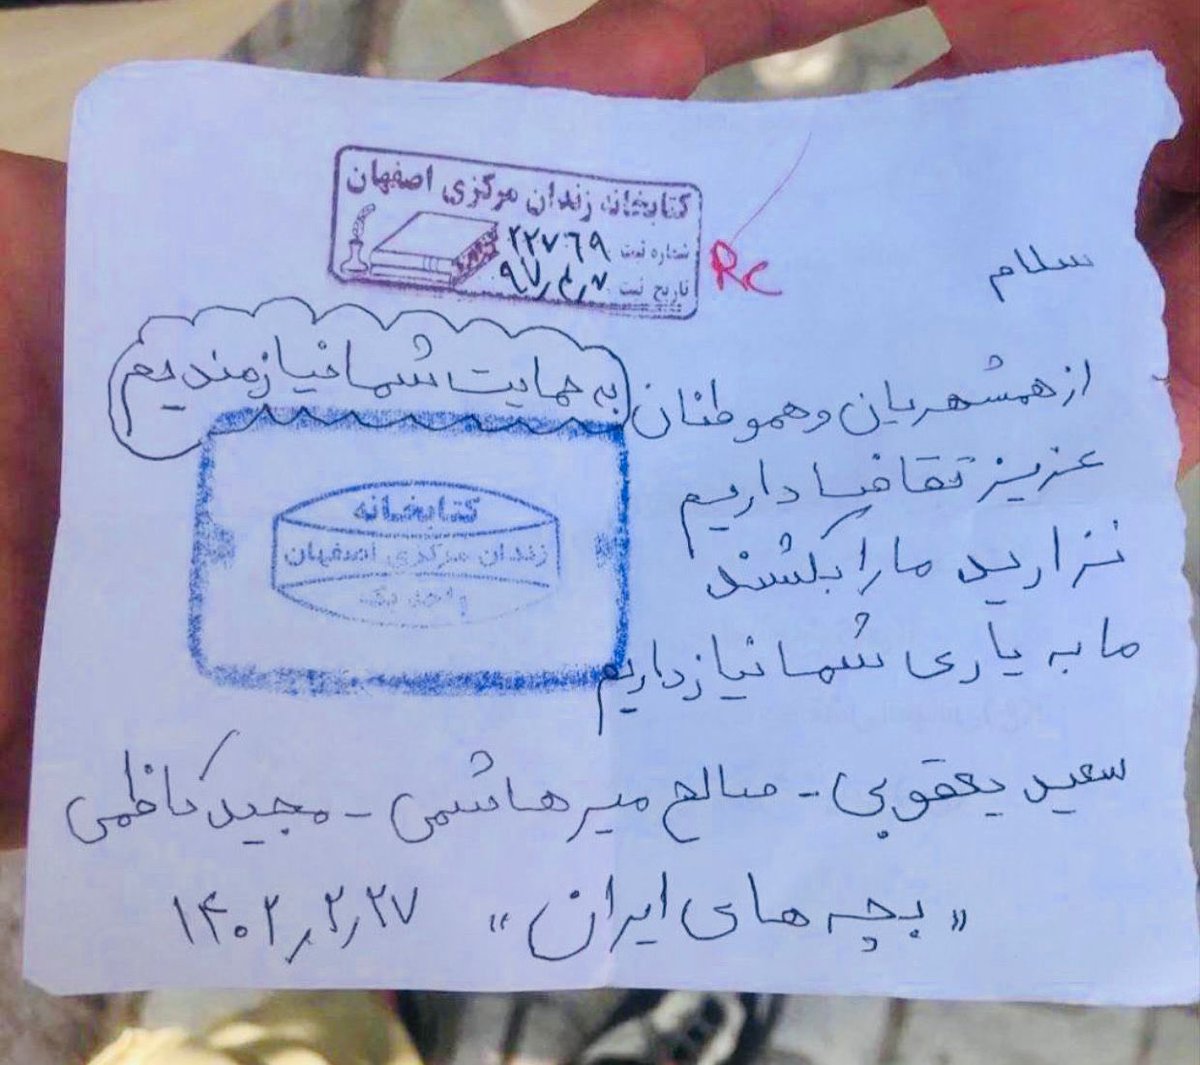 کتابخانه زندان مرکزی اصفهان
شماره ثبت ۲۲۷۶۹
تاریخ ثبت ۹۷٫۴٫۷
RC
سلام
از همشهریان و هموطنان به حمایت شما نیازمندیم
عزیز تقاضا داریم
نزارید ما را بکشند
ما به یاری شما نیاز داریم
کتابخانه
زندان مرکزی اصفهان
واحد یک
سعید یعقوبی - صالح میرهاشمی - مجید کاظمی
"بچه های ایران" ۱۴۰۲٫۲٫۲۷